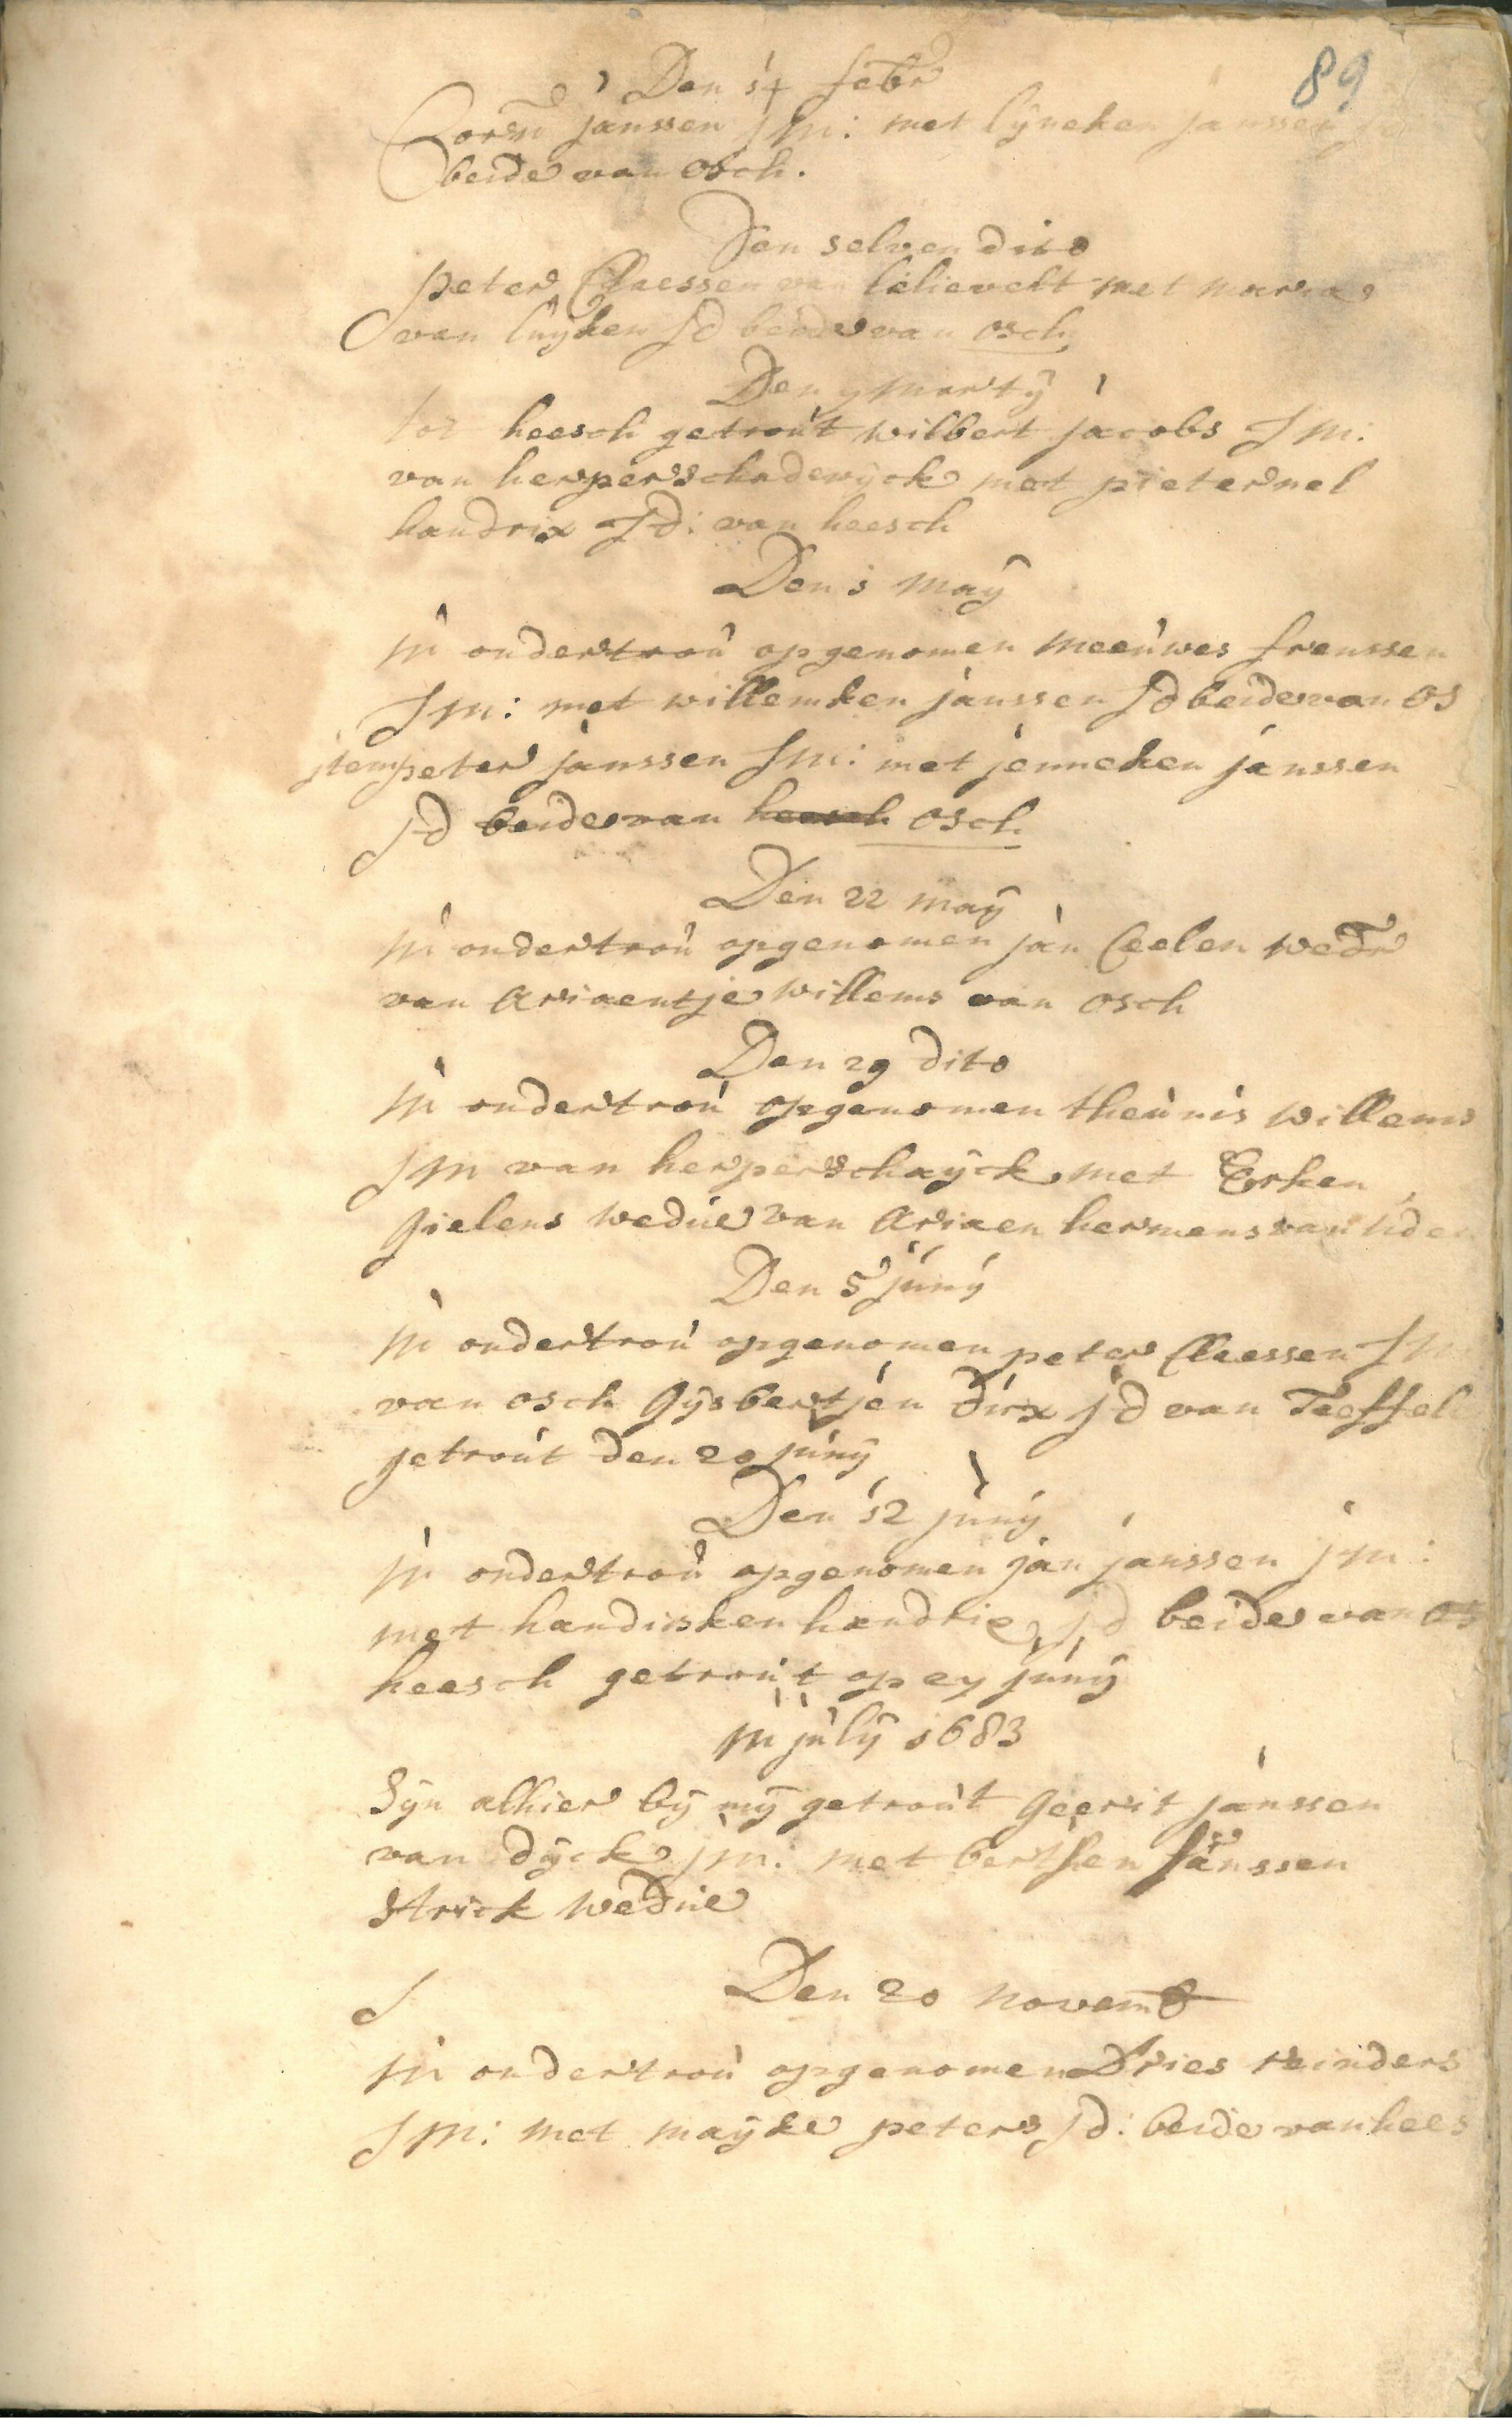 89
Den 14 febr
Corn janssen jm: met lÿneken janssen jd
beide van osch.
Den selven dito
peter Claessen van lilievelt met maria
van luÿken jd beide van osch
Den 7 martÿ
tot heesch getrout wilbert jacobs Jm:
van herperschadewÿck met pieternel
handrix Jd: van heesch
Den 1 maÿ
in ondertrou opgenomen meeuwes franssen
Jm: met willemken janssen Jd beide van os
item peter janssen Jm: met jenneken janssen
Jd beide van heesch osch
Den 22 maÿ
in ondertrou opgenomen jan Ceelen wedr
van Ariaentje willems van osch
Den 29 dito
in ondertrou opgenomen theunis willems
Jm van herperschaÿck met Erken
Gielens wedue van Ariaen hermens van Uden
Den 5 junÿ
in ondertrou opgenomen peter Claessen Jm
van osch Gÿsbertjen dirx jd van Teffel
getrout den 20 junÿ
Den 12 junÿ
in ondertrou opgenomen jan janssen jm:
met handirsken handrix jd beide van os
heesch getrout op 27 junÿ
in julÿ 1683
Sÿn alhier bÿ mÿ getrout Geerit janssen
van dÿck jm: met bertken janssen
Strick wedue
Den 20 novemb
in ondertrou opgenomen Dries reinders
Jm: met maÿke peters Jd: beide van hees